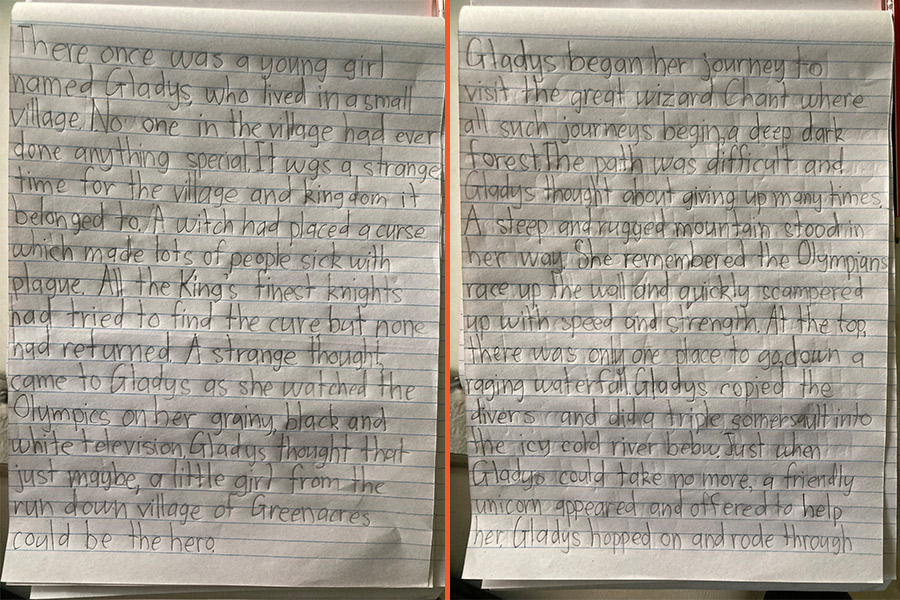 There once was a young girl
named Gladys, who lived in a small
village. No one in the village had ever
done anything special. It was a strange
time for the village and kingdom it
belonged to. A witch had placed a curse
which made lots of people sick with
plague. All the King's finest knights
had tried to find the cure but none
had returned. A strange thought
came to Gladys as she watched the
Olympics on her grainy, black and
white television. Gladys thought that
just maybe, a little girl from the
run down village of Greenacres
could be the hero.
Gladys began her journey to
visit the great wizard Chant where
all such journeys begin, a deep dark
forest. The path was difficult and
Gladys thought about giving up many times.
A steep and rugged mountain stood in
her way. She remembered the Olympians
race up the wall and quickly scampered
up with speed and strength. At the top,
there was only one place to go, down a
raging waterfall. Gladys copied the
divers and did a triple somersault into
the icy cold river below. Just when
Gladys could take no more, a friendly
unicorn appeared and offered to help
her. Gladys hopped on and rode through